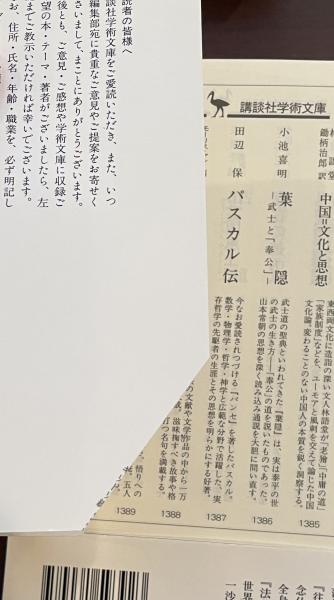 読者の皆様へ
談社学術文庫をご愛読いただき、また、いつ
編集部宛に貴重なご意見やご提案をお寄せく
さいまして、まことにありがとうございます。
後とも、ご意見・ご感想や学術文庫に収録ご
望の本・テーマ・著者がございましたら、左
までご教示いただければ幸いでございます。
お、住所・氏名・年齢・職業を、必ず明記し
講談社学術文庫
鋤柄治郎訳
中国=文化と思想
東西両文化に造詣の深い文人林語堂が「老獪」「中庸の道」
「家族制度」などを、ユーモアと風刺を交えて論じた中国
文化論。変わることのない中国人の本質を鋭く洞察する。
1385
小池喜明
葉隠
―武士と「奉公」―
武士道の聖典といわれてきた『葉隠』は、実は泰平の世
の武士の生き方―「奉公」の道を説いたものであった。
山本常朝の思想を深く読み込み通説を大胆に問い直す。
1386
田辺保
パスカル伝
今なお愛読されつづける『パンセ』を著したパスカル。
数学・物理学・哲学・神学と広範な分野で活躍した、実
存哲学の先駆者の生涯とその思想を明らかにする好著。
1387
の文献や文学作品の中から一万
蔵。滋味掬すべき故事や格
打つ名句を満載する。
1388
悟りへの
五人
1389
『往
全身
『法
世界
一沙